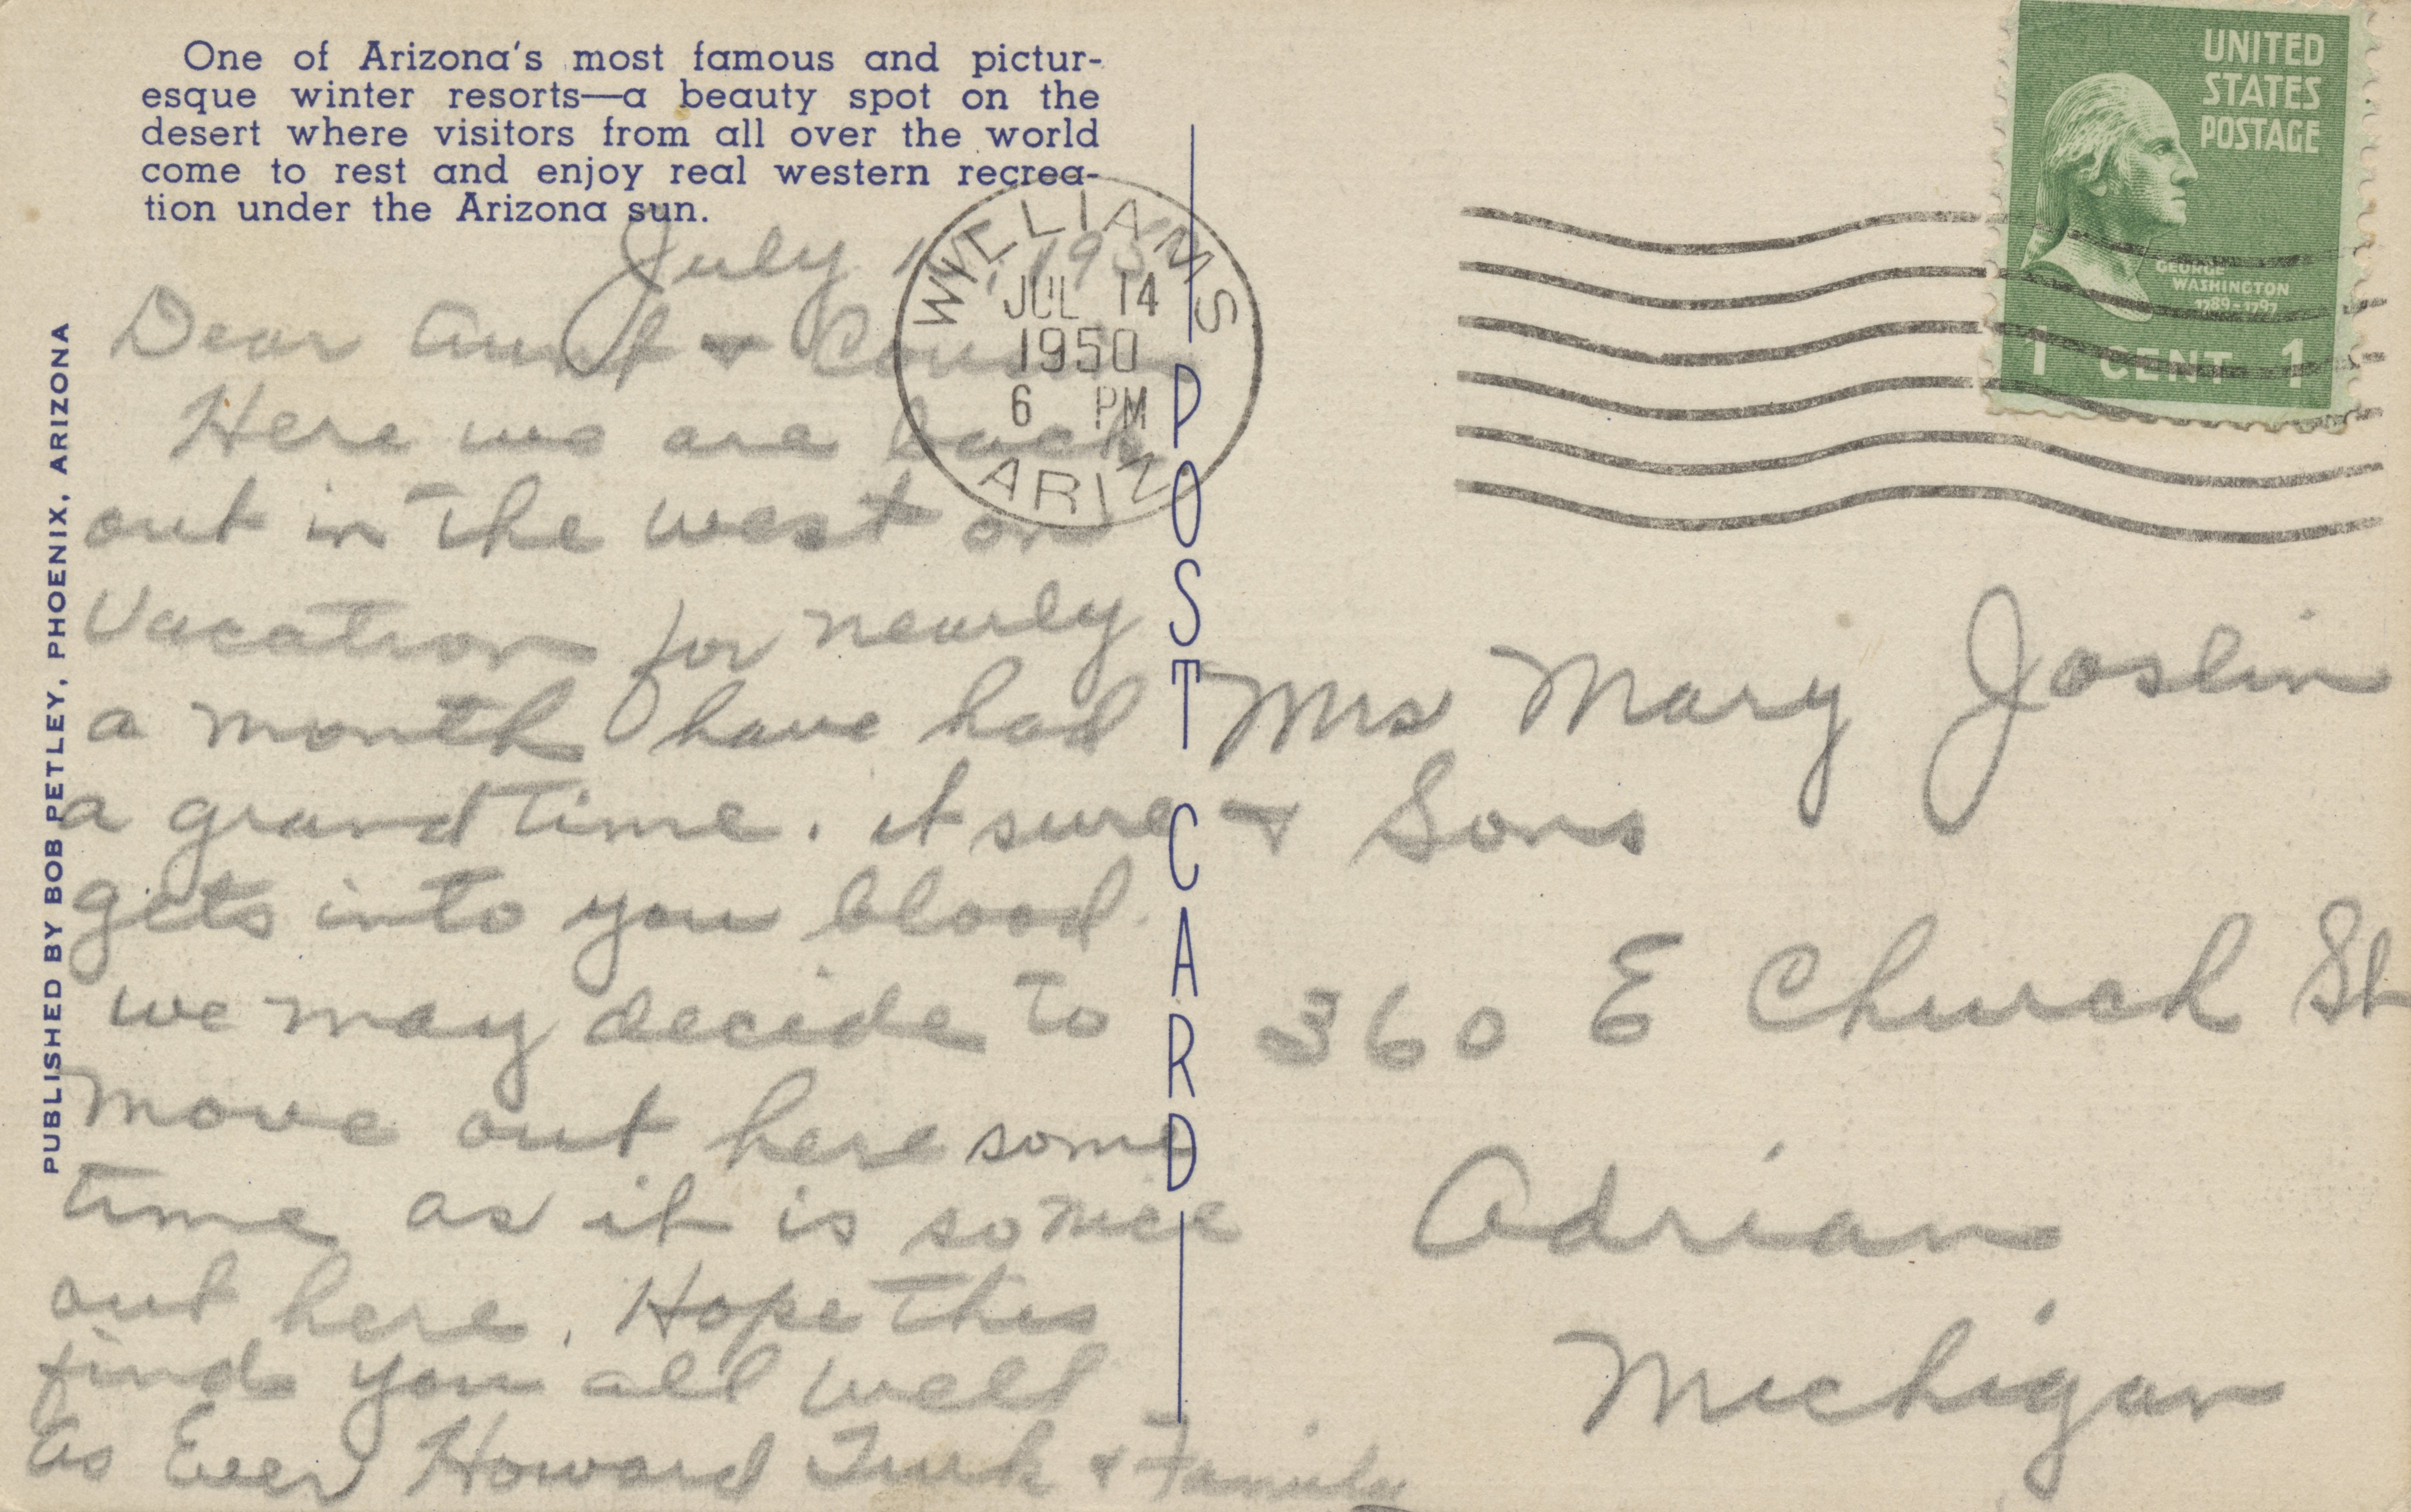 One of Arizona's most famous and pictur-
esque winter resorts—a beauty spot on the
desert where visitors from all over the world
come to rest and enjoy real western recrea-
tion under the Arizona sun.
PUBLISHED BY BOB PETLEY, PHOENIX, ARIZONA
July
Dear Aunt &
Here we are back
out in the west on
Vacation for nearly
a month have had
a grand time. it sure
gets into you blood.
we may decide to
move out here some
time as it is so nice
out here. Hope this
finds you all well
As Ever Howard Turk & Family
POST CARD
WILLIAMS
JUL 14
1950
6 PM
ARIZ
UNITED
STATES
POSTAGE
GEORGE
WASHINGTON
1789-1797
1 CENT 1
Mrs Mary Joslin
& Sons
360 E Church St
Adrian
Michigan